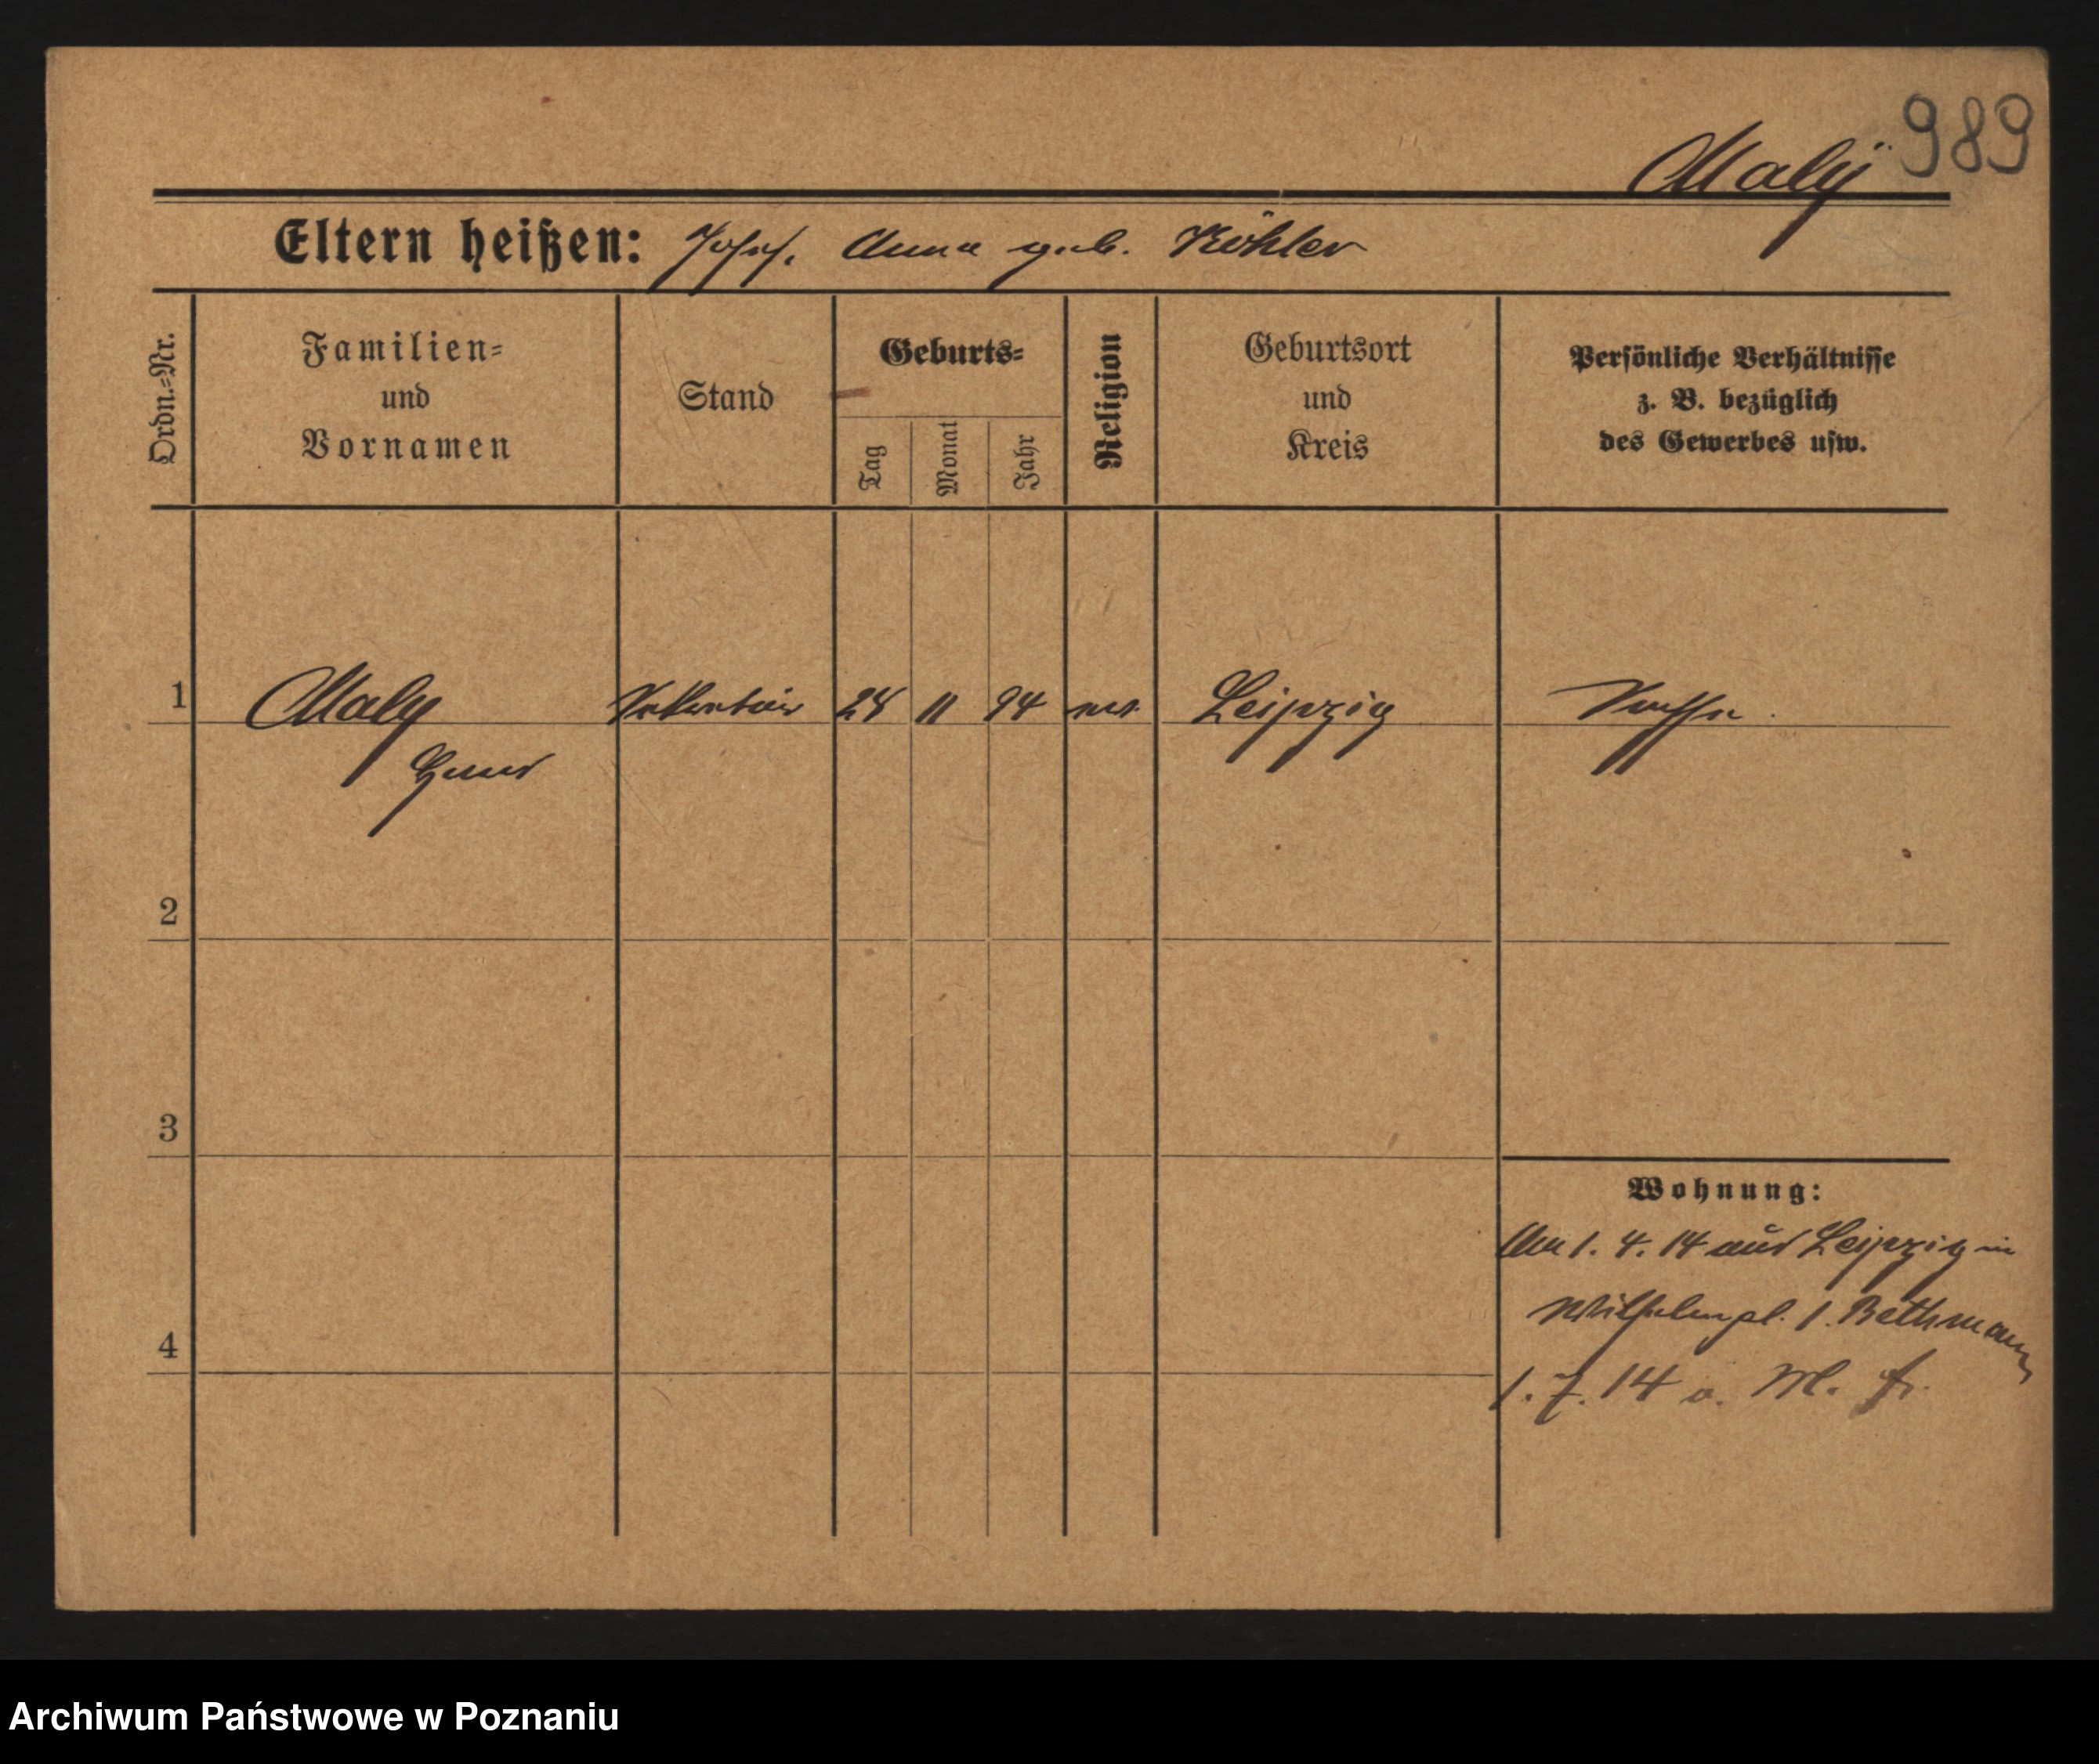 989
Maly
Eltern heißen: Josef. Anna geb. Köhler
Ordn.-Nr.
Familien-
und
Vornamen
Stand
Geburts-
Tag
Monat
Jahr
Religion
Geburtsort
und
Kreis
Persönliche Verhältnisse
z. B. bezüglich
des Gewerbes usw.
1 Maly Volontair 11 94 Leipzig
2
3
4
Wohnung:
Am 1. 4. 14 aus Leipzig in
Wilhelmpl. 1. Bethmann
1. 7. 14 M.
Archiwum Państwowe w Poznaniu